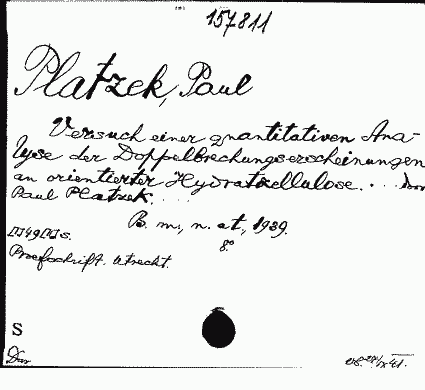 157811
Platzek, Paul
Versuch einer quantitativen Ana-
lyse der Doppelbrechungserscheinungen
an orientierter Hydratzellulose. . . door
Paul Platzek. . . .
B. m., n. at, 1939.
8°
Proefschrift. Utrecht.
S